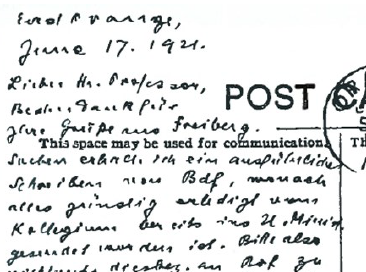 East Orange,
June 17. 1921.
Lieber Hr. Professor,
Besten Dank für
POST
Ihre Grüße aus Freiberg.
This space may be used for communication
Soeben erhalte ich ein ausführliches
Schreiben von Bdf, wonach
alles günstig erledigt vom
Kollegium bereits ins U. Minist.
gesendet worden ist. Bitte also
an Rof zu